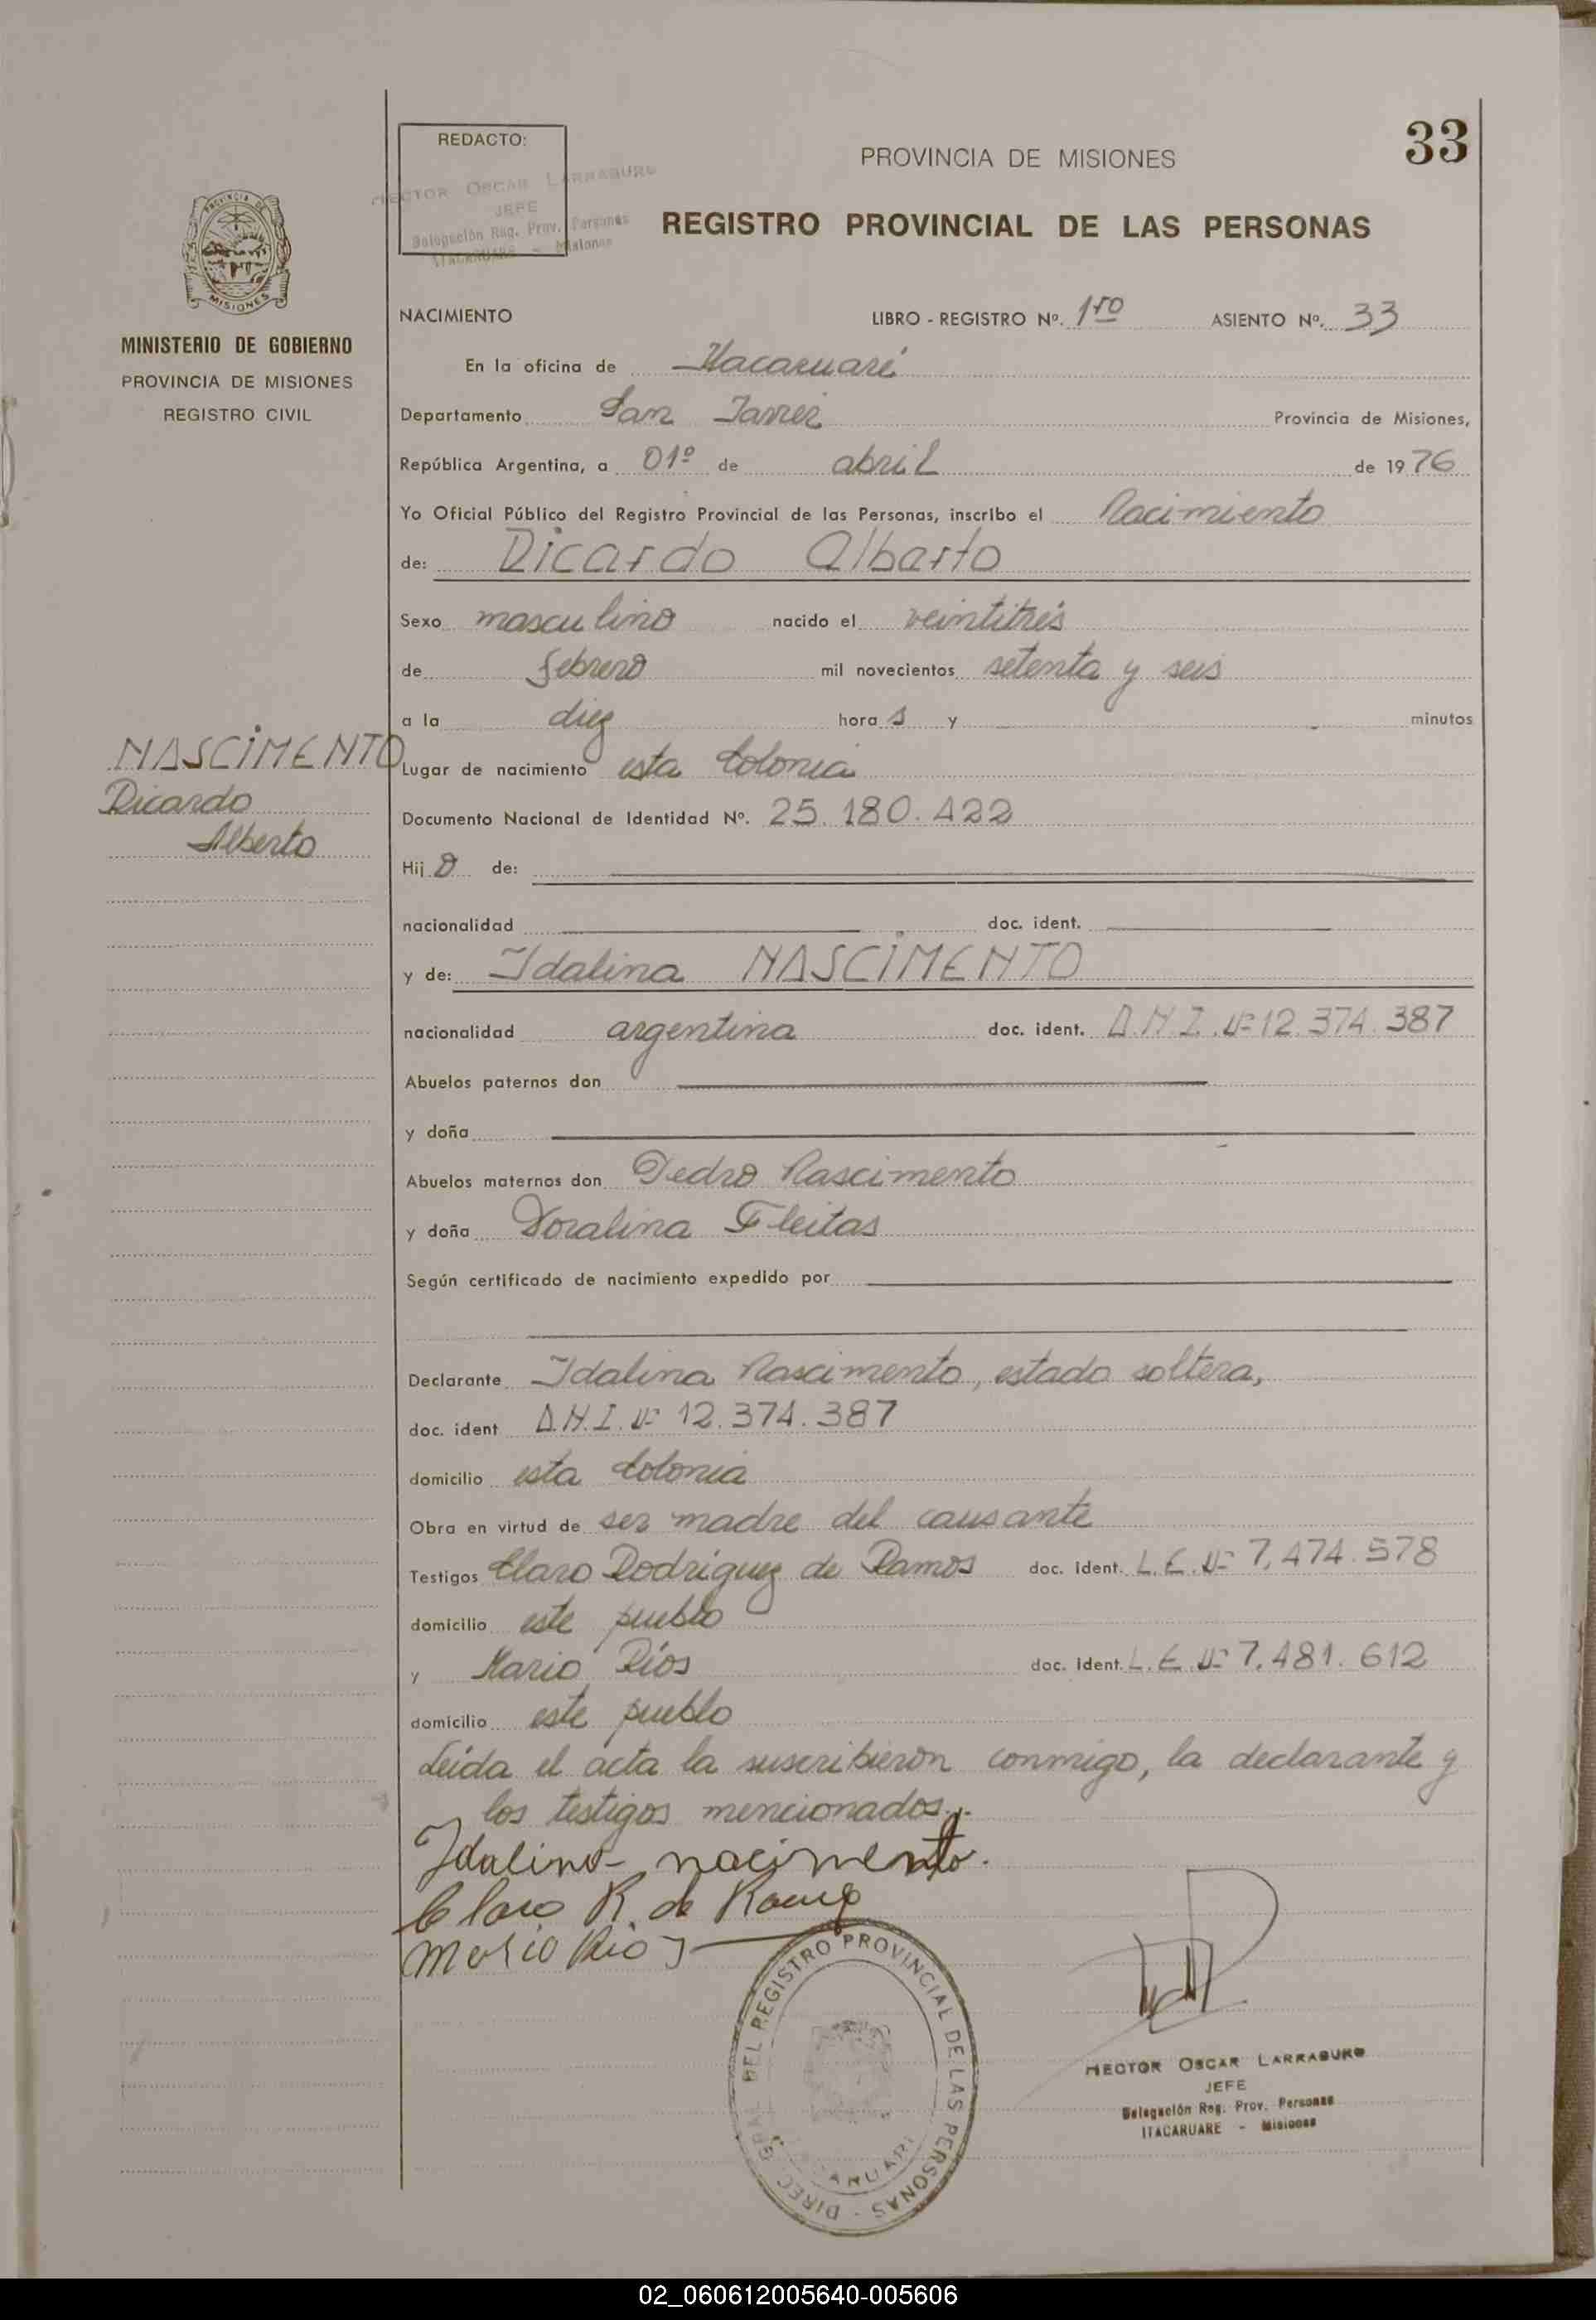 33
REDACTO:
HECTOR OSCAR LARRABURO
JEFE
Delegación Reg. Prov. Personas
ITACARUARE - Misiones
PROVINCIA DE MISIONES
REGISTRO PROVINCIAL DE LAS PERSONAS
PROVINCIA DE
MISIONES
MINISTERIO DE GOBIERNO
PROVINCIA DE MISIONES
REGISTRO CIVIL
NACIMIENTO LIBRO - REGISTRO Nº. 1ro ASIENTO Nº. 33
En la oficina de Itacaruaré
Departamento San Javier Provincia de Misiones,
República Argentina, a 01º de abril de 1976
Yo Oficial Público del Registro Provincial de las Personas, inscribo el Nacimiento
de: Ricardo Alberto
Sexo masculino nacido el veintitrés
de febrero mil novecientos setenta y seis
a la diez hora s y minutos
NASCIMENTO
Ricardo
Alberto
Lugar de nacimiento esta Colonia
Documento Nacional de Identidad Nº. 25.180.422
Hijo de:
nacionalidad doc. ident.
y de: Idalina NASCIMENTO
nacionalidad argentina doc. ident. D.N.I. Nº 12.374.387
Abuelos paternos don
y doña
Abuelos maternos don Pedro Nascimento
y doña Doralina Fleitas
Según certificado de nacimiento expedido por
Declarante Idalina Nascimento, estado soltera,
doc. ident D.N.I. Nº 12.374.387
domicilio esta Colonia
Obra en virtud de ser madre del causante
Testigos Claro Rodriguez de Ramos doc. ident. L.E. Nº 7.474.578
domicilio este pueblo
y Mario Ríos doc. ident. L.E. Nº 7.481.612
domicilio este pueblo
Leída el acta la suscribieron conmigo, la declarante y
los testigos mencionados.
Idalina nacimento.
Claro R. de Ramos
Mario Rios
DIREC. GRAL. DEL REGISTRO PROVINCIAL DE LAS PERSONAS
HECTOR OSCAR LARRABURO
JEFE
Delegación Reg. Prov. Personas
ITACARUARE - Misiones
02_060612005640-005606